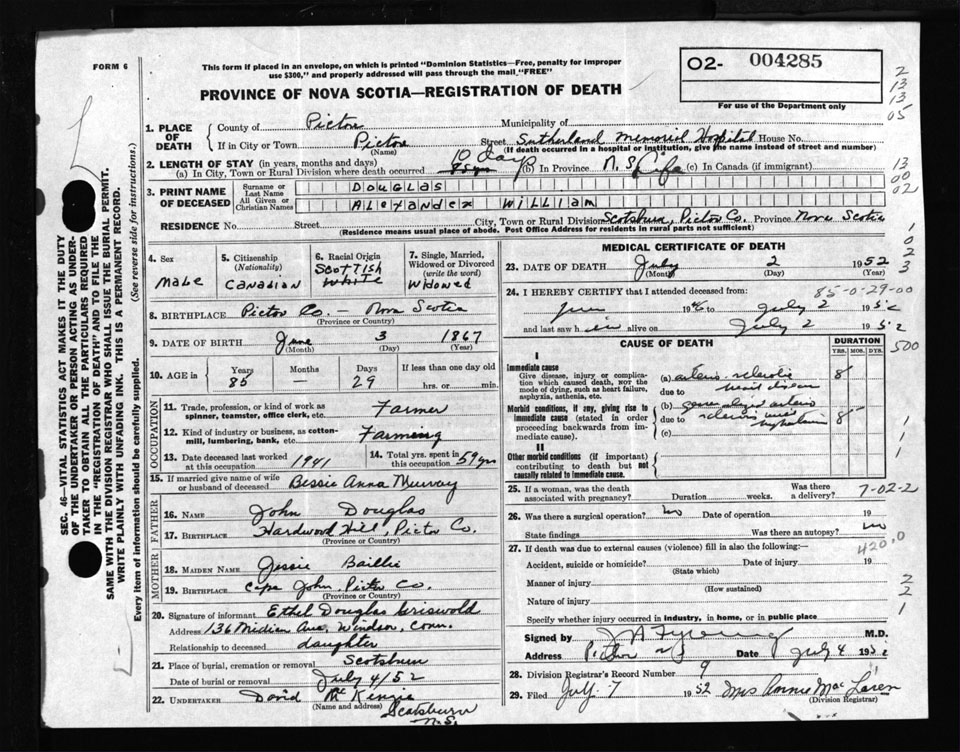 FORM 6
This form if placed in an envelope, on which is printed "Dominion Statistics—Free, penalty for improper
use $300," and properly addressed will pass through the mail "FREE"
O2- 004285
PROVINCE OF NOVA SCOTIA—REGISTRATION OF DEATH
For use of the Department only
2
13
13
05
13
00
02
1. PLACE OF DEATH
County of Pictou Municipality of
If in City or Town Pictou Street Sutherland Memorial Hospital House No.
(Name) (If death occurred in a hospital or institution, give the name instead of street and number)
2. LENGTH OF STAY (in years, months and days)
(a) In City, Town or Rural Division where death occurred 10 days (b) In Province N.S. Life (c) In Canada (if immigrant)
3. PRINT NAME OF DECEASED
Surname or Last Name DOUGLAS
All Given or Christian Names Alexander William
RESIDENCE No. Street City, Town or Rural Division Scotsburn, Pictou Co. Province Nova Scotia
(Residence means usual place of abode. Post Office Address for residents in rural parts not sufficient)
4. Sex
Male
5. Citizenship
(Nationality)
Canadian
6. Racial Origin
Scottish
White
7. Single, Married,
Widowed or Divorced
(write the word)
Widowed
8. BIRTHPLACE Pictou Co. — Nova Scotia
(Province or Country)
9. DATE OF BIRTH June 3 1867
(Month) (Day) (Year)
10. AGE in Years Months Days If less than one day old
85 — 29 hrs. or min.
OCCUPATION
11. Trade, profession, or kind of work as
spinner, teamster, office clerk, etc. Farmer
12. Kind of industry or business, as cotton-
mill, lumbering, bank, etc. Farming
13. Date deceased last worked
at this occupation 1941
14. Total yrs. spent in
this occupation 59 yrs
15. If married give name of wife
or husband of deceased Bessie Anna Murray
FATHER
16. Name John Douglas
17. Birthplace Hardwood Hill, Pictou Co.
(Province or Country)
MOTHER
18. Maiden Name Jessie Baillie
19. Birthplace Cape John, Pictou Co.
(Province or Country)
20. Signature of informant Ethel Douglas Griswold
Address 136 Ave, Windsor, Conn.
Relationship to deceased daughter
21. Place of burial, cremation or removal Scotsburn
Date of burial or removal July 4/52
22. Undertaker David McKenzie
(Name and address) Scotsburn
N.S.
MEDICAL CERTIFICATE OF DEATH
23. DATE OF DEATH July 2 1952
(Month) (Day) (Year)
24. I HEREBY CERTIFY that I attended deceased from: 85-0-29-00
June 1946 to July 2 1952
and last saw him alive on July 2 1952
CAUSE OF DEATH
DURATION
YRS. MOS. DYS.
I
Immediate cause
Give disease, injury or complica-
tion which caused death, not the
mode of dying, such as heart failure,
asphyxia, asthenia, etc.
(a) arterio sclerotic
heart disease
8
due to
Morbid conditions, if any, giving rise to
immediate cause (stated in order
proceeding backwards from im-
mediate cause).
(b) generalized arterio
due to sclerosis and
hypertension
8
(c)
II
Other morbid conditions (if important)
contributing to death but not
causally related to immediate cause.
25. If a woman, was the death
associated with pregnancy? Duration weeks. Was there
a delivery? 7-02-2
26. Was there a surgical operation? no Date of operation 19
State findings Was there an autopsy? no
27. If death was due to external causes (violence) fill in also the following:— 420.0
Accident, suicide or homicide? Date of injury 19
(State which)
Manner of injury
(How sustained)
Nature of injury
Specify whether injury occurred in industry, in home, or in public place
Signed by M.D.
Address Pictou NS Date July 4 1952
28. Division Registrar's Record Number 9
29. Filed July 7 1952 Mrs Annie MacLaren
(Division Registrar)
1
0
2
3
500
1
1
1
2
2
1
SEC. 46—VITAL STATISTICS ACT MAKES IT THE DUTY
OF THE UNDERTAKER OR PERSON ACTING AS UNDER-
TAKER TO OBTAIN ALL THE PARTICULARS REQUIRED
IN THE "REGISTRATION OF DEATH" AND TO FILE THE
SAME WITH THE DIVISION REGISTRAR WHO SHALL ISSUE THE BURIAL PERMIT.
WRITE PLAINLY WITH UNFADING INK. THIS IS A PERMANENT RECORD.
Every item of information should be carefully supplied. (See reverse side for instructions.)